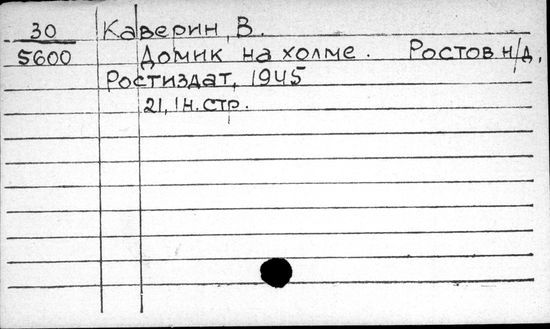 30 Каверин, В.
5600 Домик на холме. Ростов н/д,
Ростиздат, 1945
21, 1 н. стр.